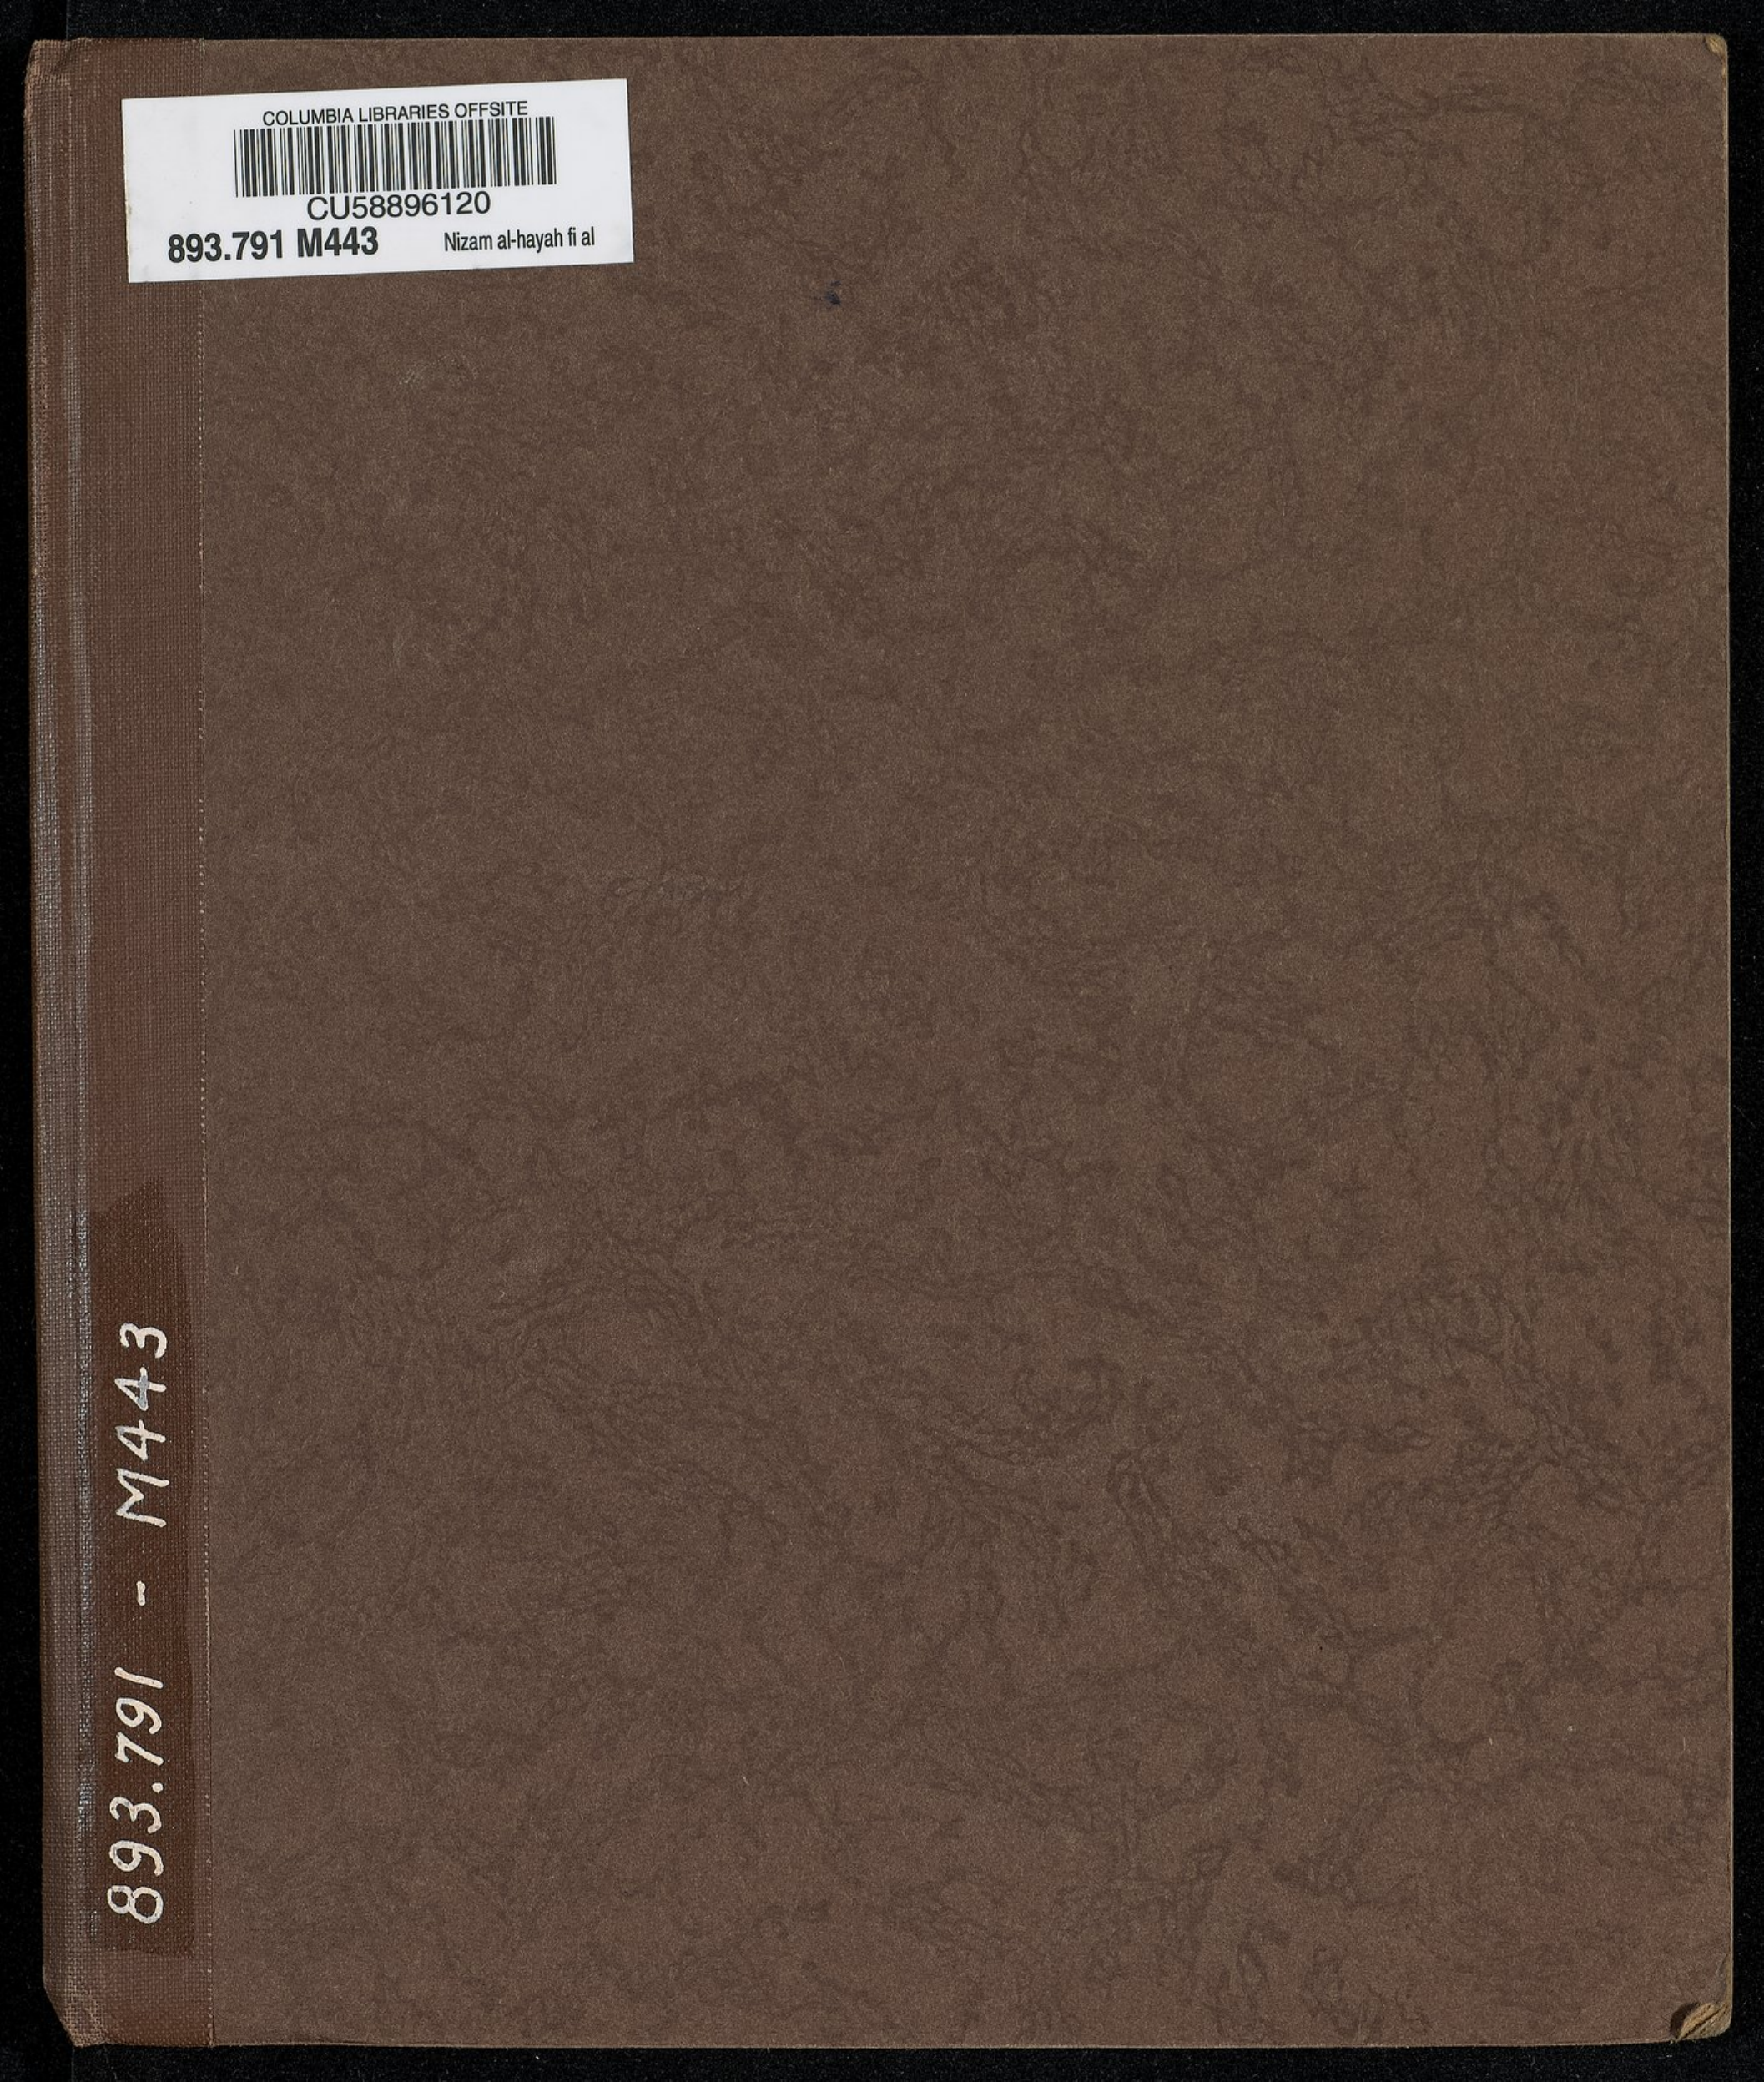 COLUMBIA LIBRARIES OFFSITE
CU58896120
893.791 M443 Nizam al-hayah fi al
893.791 - M443